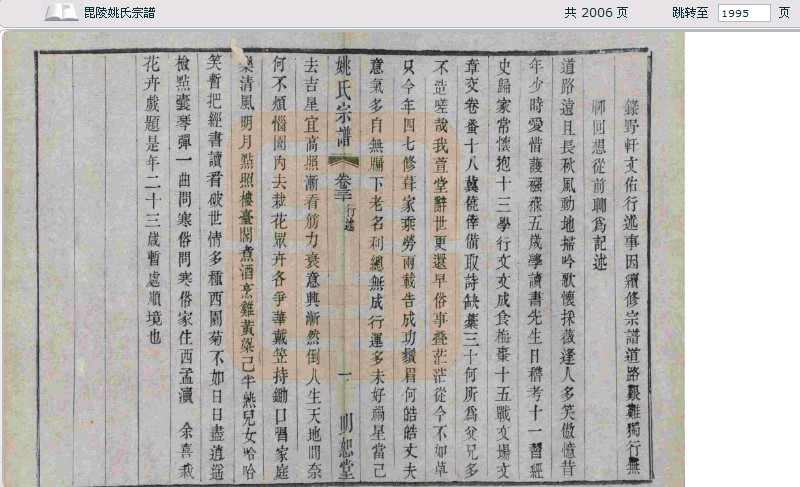 毘陵姚氏宗譜
共 2006 页
跳转至 1995 页
錄野軒文佑行述事因續修宗譜道路艱難獨行無
聊回想從前聊為記述
道路遠且長秋風動地掃吟歌懷採薇逢人多笑傲憶昔
年少時愛惜護襁褓五歲學讀書先生日稽考十一習經
史歸家常懷抱十三學行文文成食梅棗十五戰文場文
章交卷蚤十八冀僥倖備取詩缺藁三十何所為父兄多
不造嗟哉我萱堂辭世更還早俗事叠茫茫從今不如草
只今年四七修葺家乘勞兩載告成功鬚眉何皓皓丈夫
意氣多自無牖下老名利總無成行運多未好禍星當己
姚氏宗譜
卷三
行述
一
明恕堂
去吉星宜高照漸看筋力衰意興漸然倒人生天地間奈
何不煩惱園內去栽花眾卉各爭華戴笠持鋤口唱家庭
樂清風明月點照樓臺閣煮酒烹雞黃粱己半熟兒女哈哈
笑暫把經書讀看破世情多種西園菊不如日日盡逍遥
檢點囊琴彈一曲問寒俗問寒俗家住西孟瀆 余喜栽
花卉戲題是年二十三歲暫處順境也